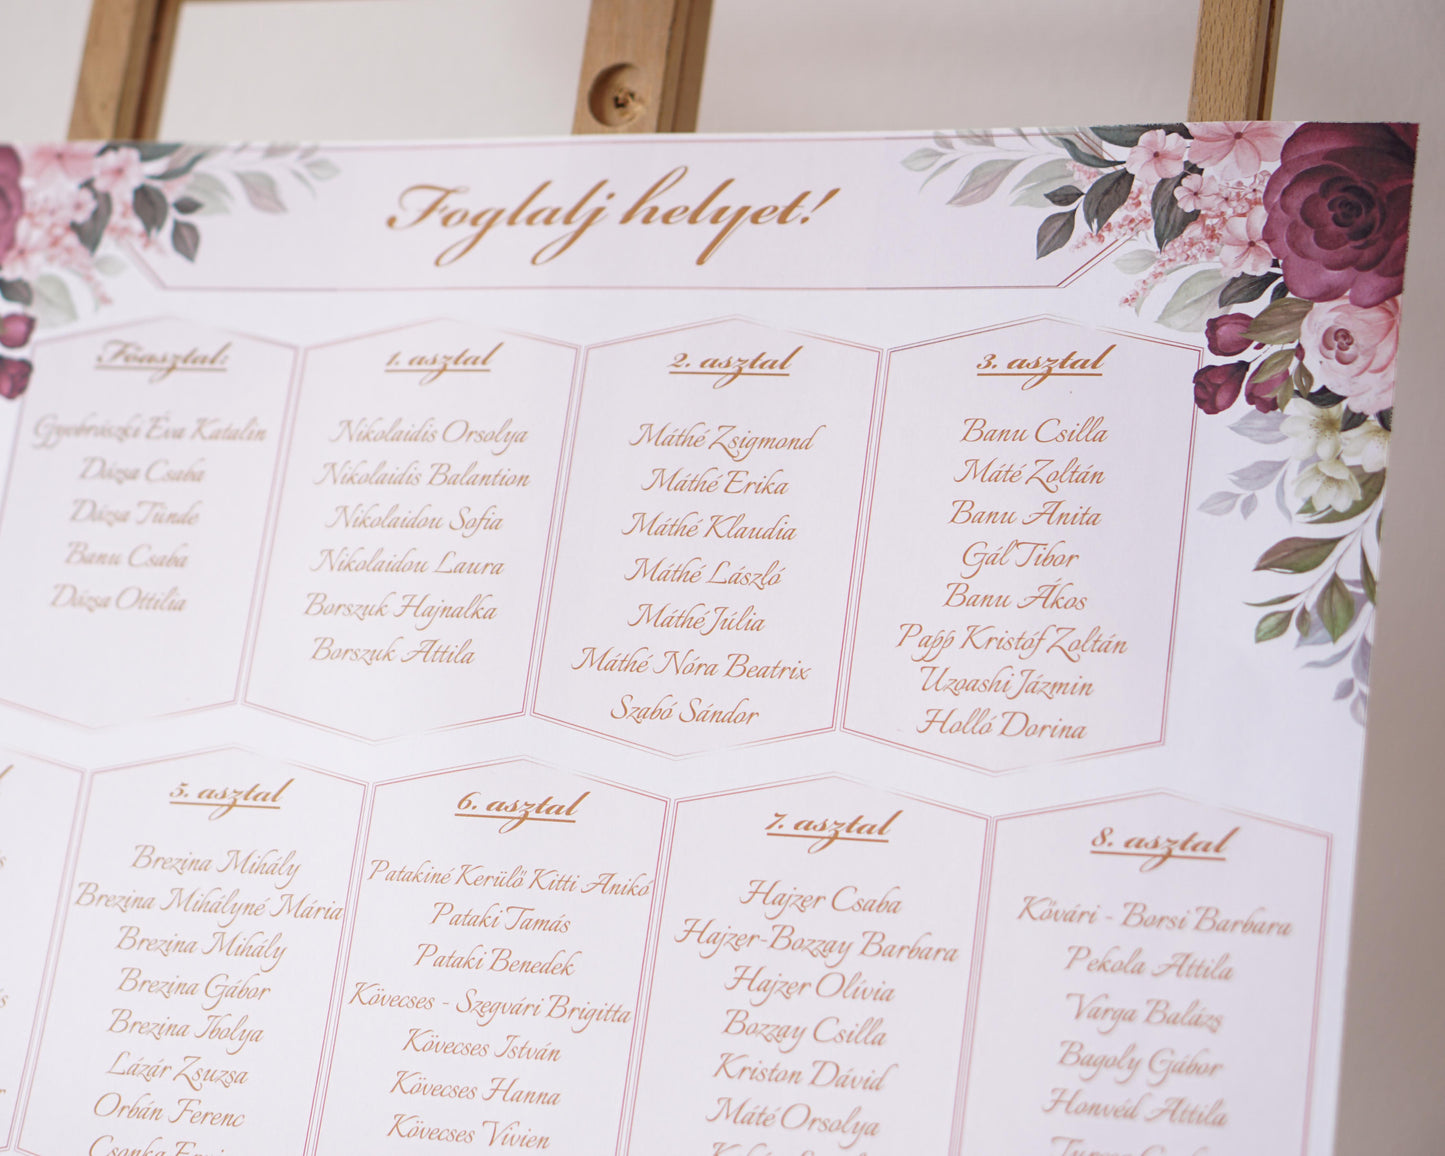 Foglalj helyet!
Főasztal:
Gyobrászki Éva Katalin
Dózsa Csaba
Dózsa Tünde
Banu Csaba
Dózsa Ottilia
1. asztal
Nikolaidis Orsolya
Nikolaidis Balantion
Nikolaidou Sofia
Nikolaidou Laura
Borszuk Hajnalka
Borszuk Attila
2. asztal
Máthé Zsigmond
Máthé Erika
Máthé Klaudia
Máthé László
Máthé Júlia
Máthé Nóra Beatrix
Szabó Sándor
3. asztal
Banu Csilla
Máté Zoltán
Banu Anita
Gál Tibor
Banu Ákos
Papp Kristóf Zoltán
Uzoashi Jázmin
Holló Dorina
5. asztal
Brezina Mihály
Brezina Mihályné Mária
Brezina Mihály
Brezina Gábor
Brezina Ibolya
Lázár Zsuzsa
Orbán Ferenc
Csonka
6. asztal
Patakiné Kerülő Kitti Anikó
Pataki Tamás
Pataki Benedek
Kövecses - Szegvári Brigitta
Kövecses István
Kövecses Hanna
Kövecses Vivien
7. asztal
Hajzer Csaba
Hajzer-Bozzay Barbara
Hajzer Olívia
Bozzay Csilla
Kriston Dávid
Máté Orsolya
8. asztal
Kővári - Borsi Barbara
Pekola Attila
Varga Balázs
Bagoly Gábor
Honvéd Attila